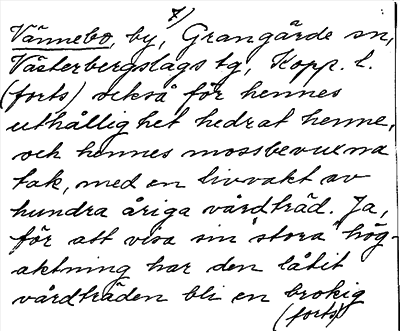 7)
Vännebo, by, Grangärde sn,
Västerbergslags tg, Kopp. l.
(forts) också för hennes
uthållighet hedrat henne,
och hennes mossbevuxna
tak, med en livvakt av
hundra åriga vårdträd. Ja,
för att visa sin stora hög-
aktning har den låtit
vårdträden bli en brokig
(forts)